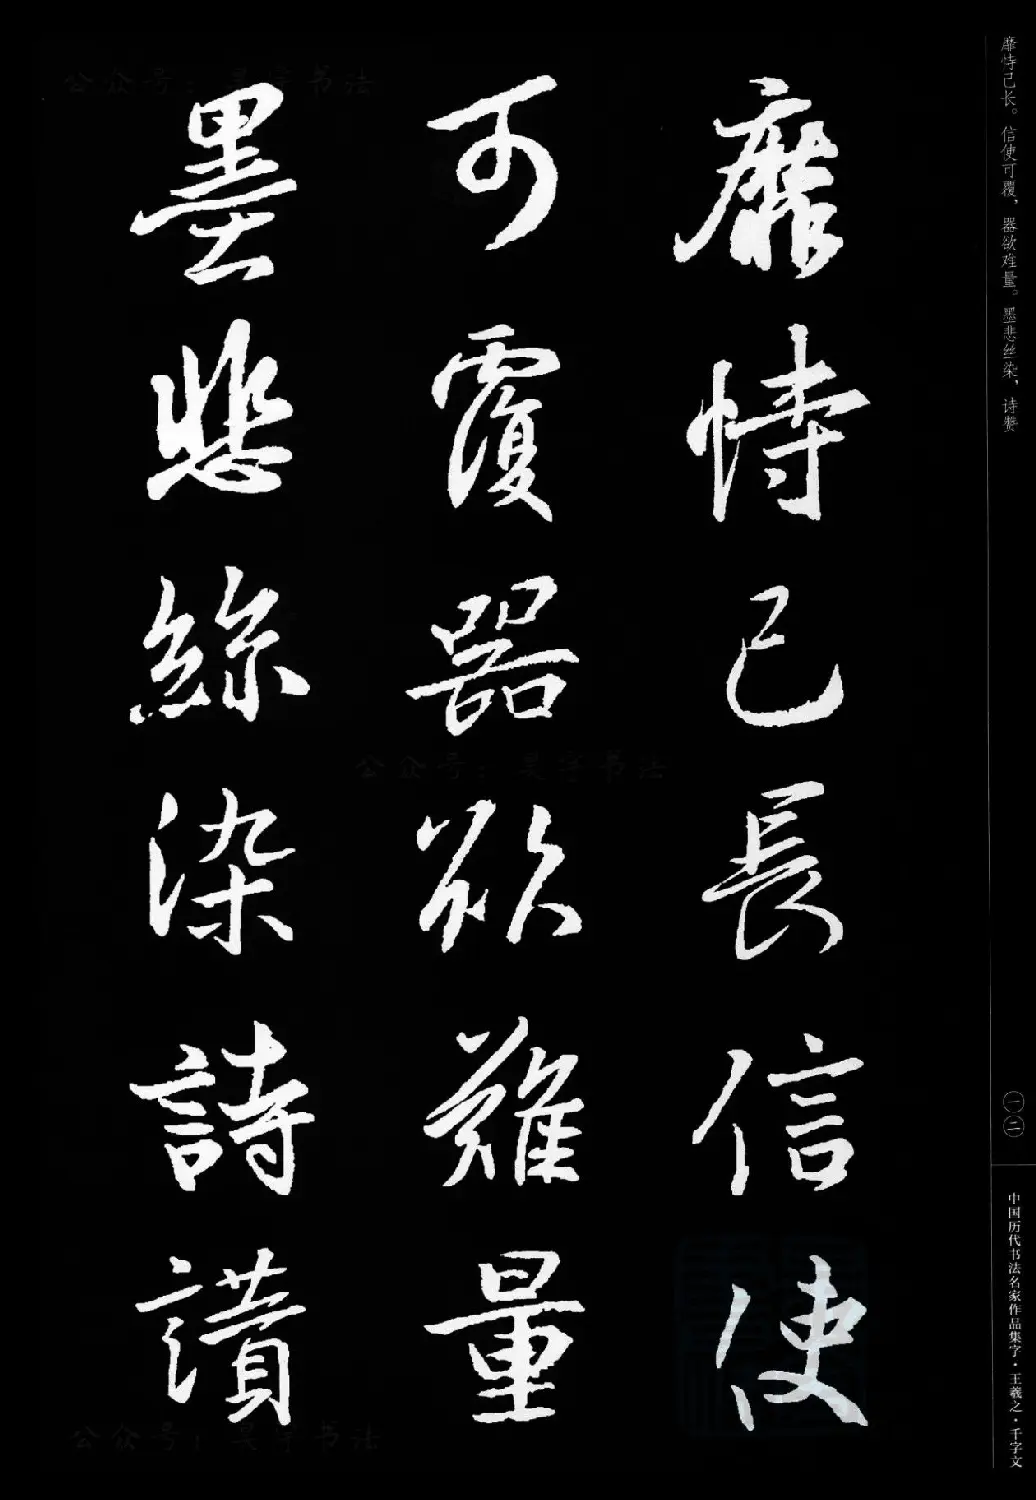 靡恃己長信使
可覆器欲難量
墨悲絲染詩讚
靡恃己长。信使可覆，器欲难量。墨悲丝染，诗赞
一二
中国历代书法名家作品集字·王羲之·千字文
公众号：昊宇书法
公众号：昊宇书法
公众号：昊宇书法